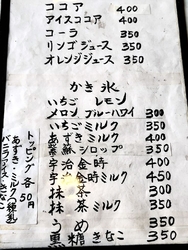 ココア 400
アイスココア 400
コーラ 350
リンゴジュース 350
オレンジジュース 350
かき氷
いちご レモン
メロン ブルーハワイ 300
いちごミルク 350
あずきミルク 400
シロップ 350
宇治金時 400
宇治金時ミルク 450
抹茶 300
抹茶ミルク 350
うめ 350
黒糖きなこ 350
トッピング各50円
あずき・ミルク(練乳)
バニラアイス・きなこ